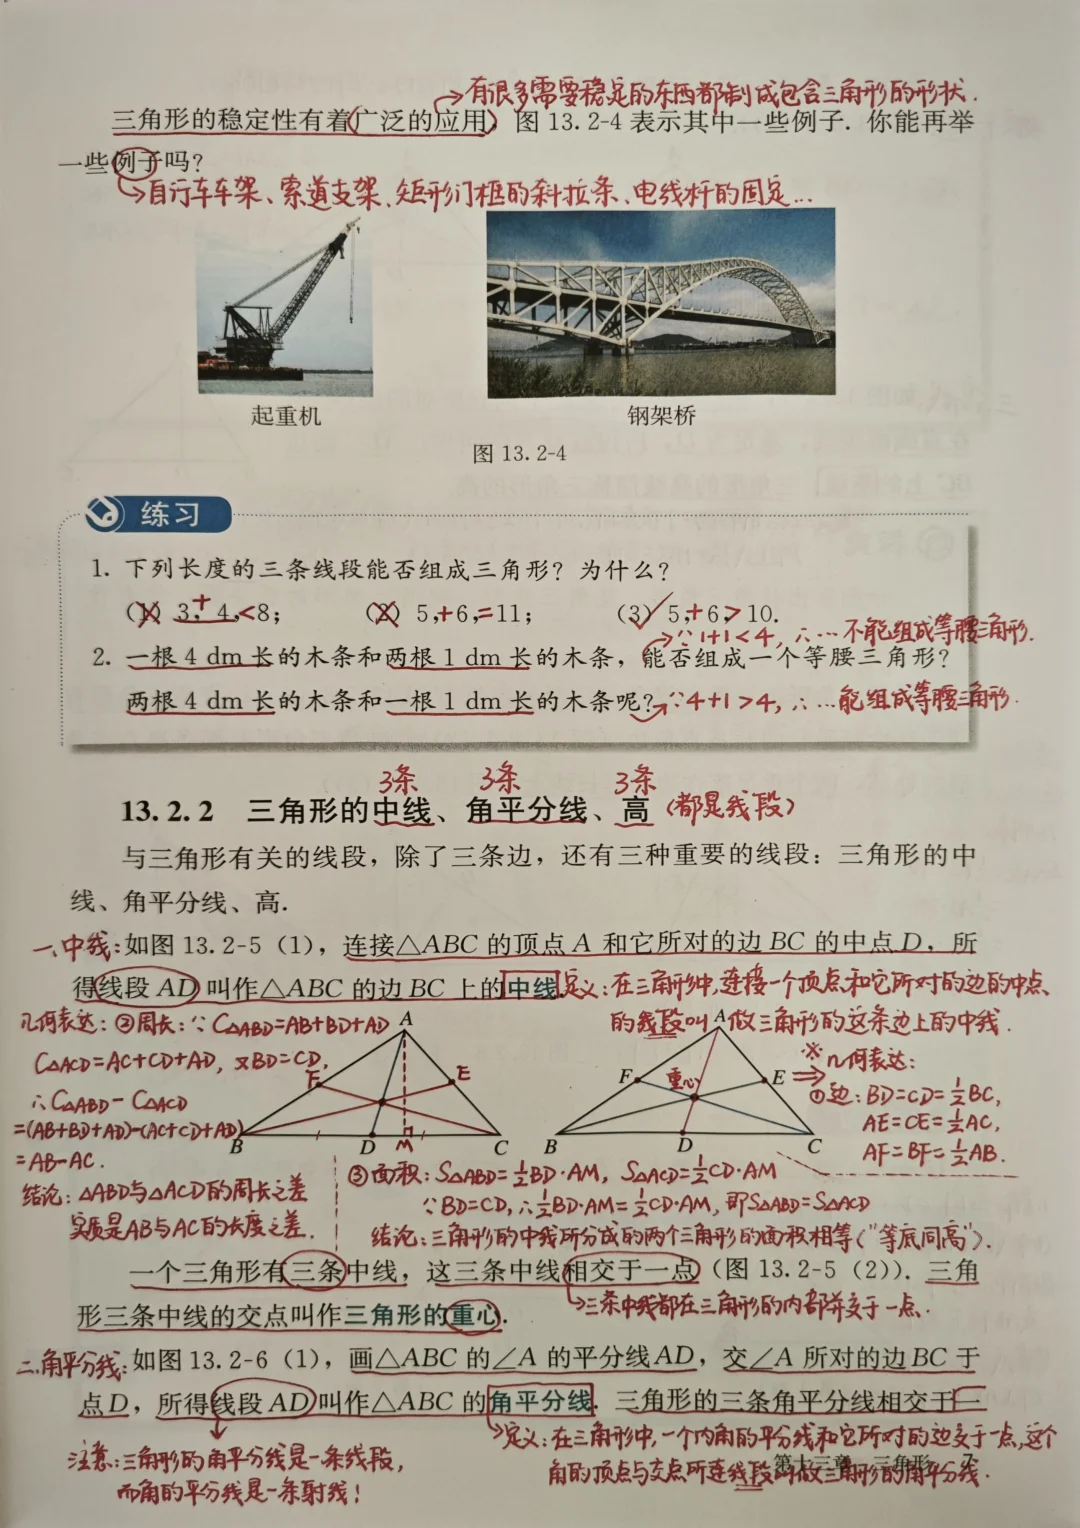 →有很多需要稳定的东西都制成包含三角形的形状.
三角形的稳定性有着广泛的应用，图 13.2-4 表示其中一些例子. 你能再举
一些例子吗？
→自行车车架、索道支架、矩形门框的斜拉条、电线杆的固定...
起重机
钢架桥
图 13.2-4
练习
1. 下列长度的三条线段能否组成三角形？为什么？
(1) 3,+ 4,<8； (2) 5,+6,=11； (3)✓5,+6,>10.
→∵1+1<4, ∴…不能组成等腰三角形.
2. 一根 4 dm 长的木条和两根 1 dm 长的木条，能否组成一个等腰三角形？
两根 4 dm 长的木条和一根 1 dm 长的木条呢？→∵4+1>4, ∴…能组成等腰三角形.
3条 3条 3条
13.2.2 三角形的中线、角平分线、高(都是线段)
与三角形有关的线段，除了三条边，还有三种重要的线段：三角形的中
线、角平分线、高.
一.中线:如图 13.2-5（1），连接△ABC 的顶点 A 和它所对的边 BC 的中点 D，所
得线段 AD 叫作△ABC 的边 BC 上的中线.定义:在三角形中,连接一个顶点和它所对的边的中点
的线段叫做三角形的这条边上的中线.
几何表达: ②周长:∵C△ABD=AB+BD+AD
C△ACD=AC+CD+AD, 又BD=CD,
∴C△ABD-C△ACD
=(AB+BD+AD)-(AC+CD+AD)
=AB-AC.
结论:△ABD与△ACD的周长之差
实质是AB与AC的长度之差.
A
F
E
B
D
M
C
A
F
重心
E
B
D
C
※几何表达:
①边:BD=CD=½BC,
AE=CE=½AC,
AF=BF=½AB.
③面积: S△ABD=½BD·AM, S△ACD=½CD·AM
∵BD=CD,∴½BD·AM=½CD·AM,即S△ABD=S△ACD
结论:三角形的中线所分成的两个三角形的面积相等("等底同高").
一个三角形有三条中线，这三条中线相交于一点（图 13.2-5（2））. 三角
→三条中线都在三角形的内部并交于一点.
形三条中线的交点叫作三角形的重心.
二.角平分线:如图 13.2-6（1），画△ABC 的∠A 的平分线 AD，交∠A 所对的边 BC 于
点 D，所得线段 AD 叫作△ABC 的角平分线. 三角形的三条角平分线相交于一
→定义:在三角形中,一个内角的平分线和它所对的边交于一点,这个
角的顶点与交点所连线段叫做三角形的角平分线.
注意:三角形的角平分线是一条线段,
而角的平分线是一条射线!
第十三章 三角形 7